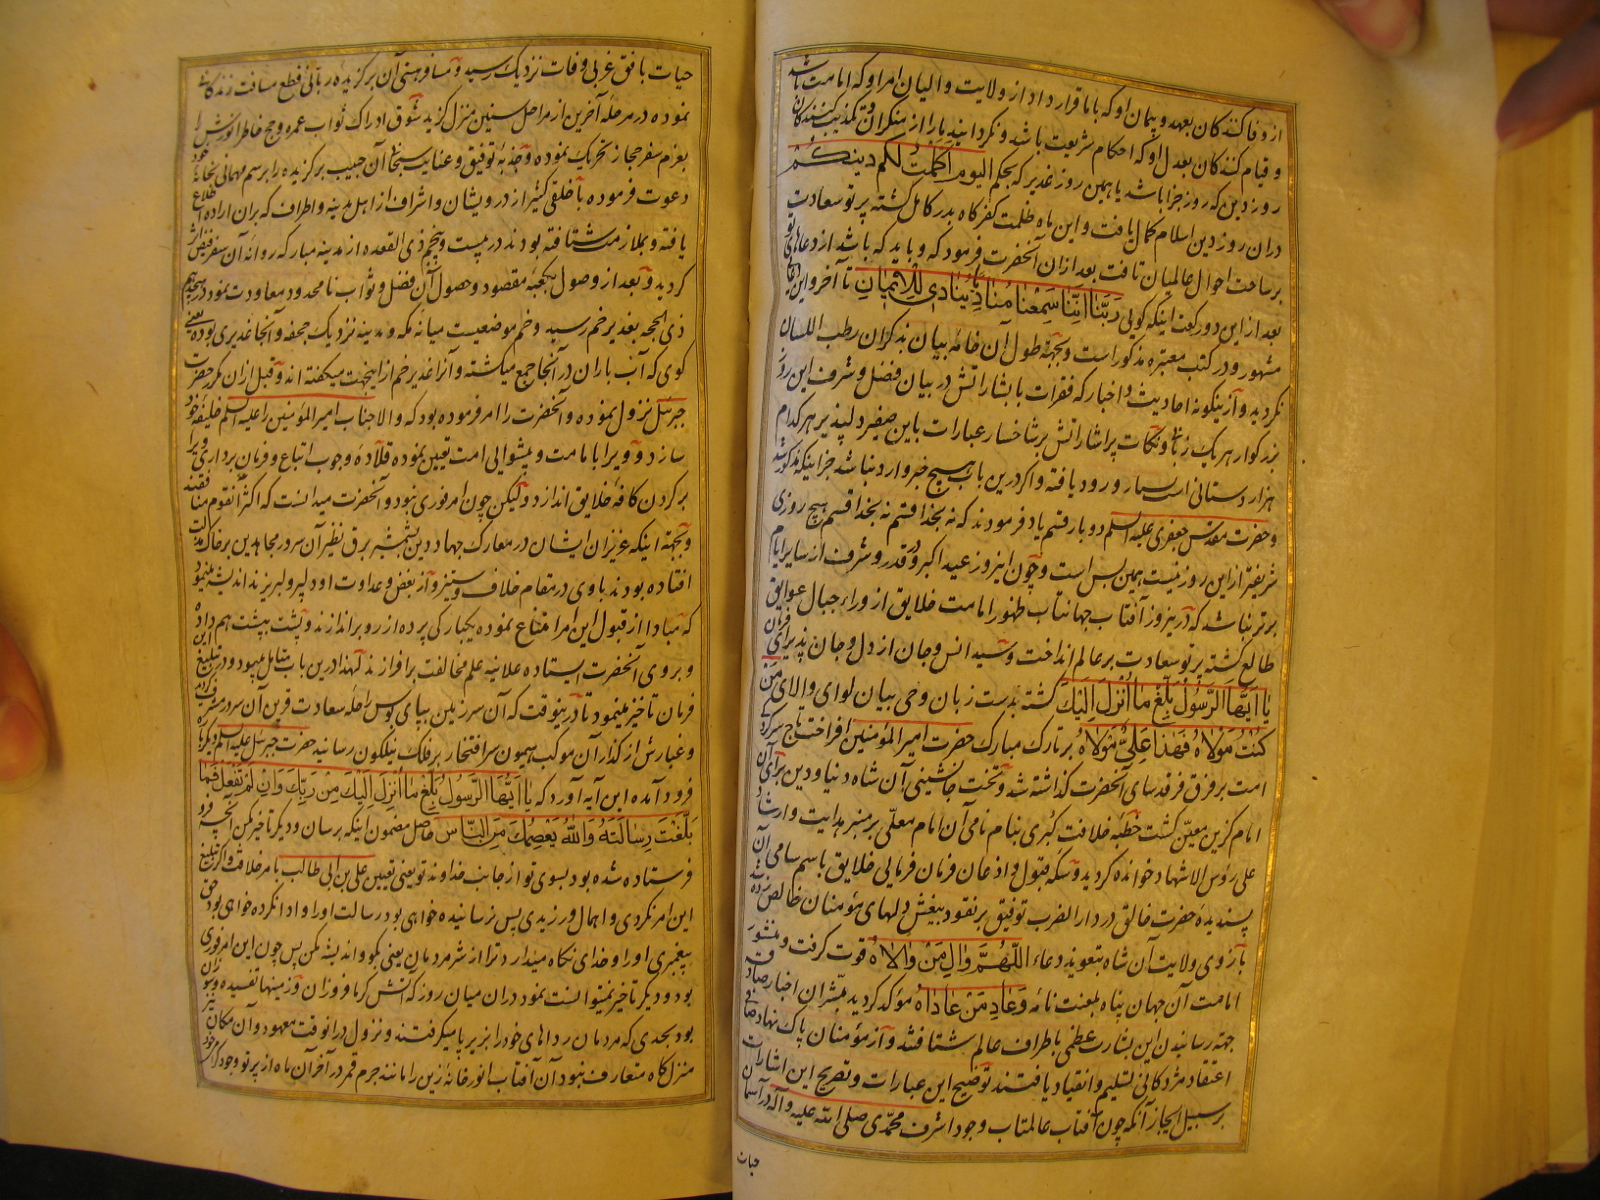 از وفاکنندگان بعهد و پیمان او که با ما قرار داد از ولایت والیان امر او که امامت باشد
و قیام کنندگان بعدل او که احکام شریعت باشد و نگردانید ما را از منکران و تکذیب کنندگان
روز دین که روز جزا باشد یا همین روز غدیر که بحکم الیوم اکملت لکم دینکم
دران روز دین اسلام کمال یافت و این ماه ظلمت کفر کاه بدر کامل کشته پرتو سعادت
بر ساحت احوال عالمیان تافت بعد ازان آنحضرت فرمود که و باید که باشد از دعاهای تو
بعد از این دو رکعت اینکه کوئی ربنا اننا سمعنا منادیا ینادی للایمان تا آخر و این دعا
مشهور و در کتب معتبره مذکور است و بجهة طول آن خامهٔ بیان بذکر آن رطب اللسان
نکردید و از ینکونه احادیث و اخبار که فقرات با بشاراتش در بیان فضل و شرف این روز
بزرکوار هر یک زبانی و نکات پر اشاراتش بر شاخسار عبارات باین صفیر دلپذیر هر کدام
هزار دستانی است بسیار ورود یافته و اکر درین باب هیچ خبر وارد نباشد جز اینکه مذکور شد
و حضرت مقدس جعفری علیه السلم دو بار قسم یاد فرمودند که نه بخدا قسم نه بخدا قسم هیچ روزی
شریفتر از این روز نیست همین بس است و چون این روز عید اکبر و قدر و شرف از سایر ایام
برتر نباشد که در ینروز آفتاب جهانتاب ظهور امامت خلایق از وراء جبال عوایق
طالع کشته پرتو سعادت بر عالم انداخت و سید انس و جان از دل و جان پذیرای فرمان
یا ایها الرسول بلغ ما انزل الیک کشته بدست زبان وحی بیان لوای والای من
کنت مولاه فهذا علی مولاه بر تارک مبارک حضرت امیر المؤمنین افراخت تاج سرکردگی
امت بر فرق فرقدسای آنحضرت کذاشته شد و تخت جانشینی آن شاه دنیا و دین برای آن
امام کزین معین کشت خطبه خلافت کبری بنام نامی آن امام معلی بر منبر هدایت و ارشاد
علی رؤس الاشهاد خوانده کردید و سکه قبول و اذعان فرمان فرمایی خلایق باسم سامی آن
پسندیدهٔ حضرت خالق در دار الضرب توفیق بر نقود بیغش دلهای مؤمنان خالص زده شد
بازوی ولایت آن شاه بتعویذ دعاء اللهم وال من والاه قوت کرفت و منشور
امامت آن جهان پناه بلعنت نامه و عاد من عاداه مؤکد کردید مبشران اخبار صادق
جهة رسانیدن این بشارت عظمی باطراف عالم شتافتند و از مؤمنان پاک نهاد صافی
اعتقاد مژدکانی تسلیم و انقیاد یافتند توضیح این عبارات و تصریح این اشارات
بر سبیل ایجاز آنکه چون آفتاب عالمتاب وجود اشرف محمدی صلی الله علیه و آله در آسمان
حیات
حیات بافق غربی وفات نزدیک رسید و مسافر هستی آن برکزیدهٔ ربانی قطع مسافت زندکانی
نموده در مرحلهٔ آخرین از مراحل سنین منزل کزید شوق ادراک ثواب عمره و حج خاطر انورش را
بعزم سفر حجاز تحریک نموده و جذبه توفیق و عنایت سبحانی آن حبیب برکزیده را برسم مهمانی بخانه خود
دعوت فرموده با خلقی کثیر از درویشان و اشراف از اهل مدینه و اطراف که بران اراده اطلاع
یافته و بملازمت شتافته بودند در بیست و پنجم ذی القعده از مدینه مبارکه روانه آن سفر فیض اثر
کردید و بعد از وصول بکعبه مقصود و حصول آن فضل و ثواب نامحدود معاودت نمود در هجدهم
ذی الحجه بغدیر خم رسید و خم موضعیست میانه مکه و مدینه نزدیک جحفه و آنجا غدیری بوده یعنی
کوی که آب باران در آنجا جمع میکشته و آنرا غدیر خم از اینجهت میکفته اند و قبل ازان مکرر حضرت
جبرئیل نزول نموده و آنحضرت را امر فرموده بود که والا جناب امیر المؤمنین را علیه السلم خلیفهٔ خود
سازد و ویرا بامامت و پیشوایی امت تعیین نموده قلادهٔ وجوب اتباع و فرمان برداری ویرا
بر کردن کافهٔ خلایق اندازد و لیکن چون امر فوری نبود و آنحضرت میدانست که اکثر آنقوم منافقند
و بجهة اینکه عزیزان ایشان در معارک جهاد دین بشمشیر برق نظیر آن سرور مجاهدین بر خاک مذلت
افتاده بودند با وی در مقام خلاف و ستیز و از بغض و عداوت او دلپر و لبریزند اندیشه مینمود
که مبادا از قبول این امر امتناع نموده یکبارکی پرده از رو براندازند و پشت به پشت هم داده
و بروی آنحضرت ایستاده علانیه علم مخالفت برافرازند لهذا درین باب تأمل میمود و در تبلیغ این
فرمان تأخیر مینمود تا درینوقت که آن سرزمین بپای بوس راحلهٔ سعادت قرین آن سرور مشرف کردید
و غبارش از کذار آن موکب همیون سر افتخار بر فلک نیلکون رسانید حضرت جبرئیل علیه السلم دیکرباره
فرود آمده این آیه آورد که یا ایها الرسول بلغ ما انزل الیک من ربک وان لم تفعل فما
بلغت رسالته والله یعصمک من الناس حاصل مضمون اینکه برسان و دیکر تأخیر مکن آنچه فرو
فرستاده شده بود بسوی تو از جانب خداوند تو یعنی تعیین علی بن ابی طالب بامر خلافت و اکر تبلیغ
این امر نکردی و اهمال ورزیدی پس نرسانیده خواهی بود رسالت او را و ادا نکرده خواهی بود حق
پیغمبری او را و خدای نکاه میدارد ترا از شر مردمان یعنی بکو و اندیشه مکن پس چون این امر فوری
بود و دیکر تأخیر نمیتوانست نمود دران میان روز که آتش کرما فروزان و زمینها تفسیده و سوزان
بود بحدی که مردمان رداهای خود را بزیر پا میکرفتند و نزول در انوقت معهود و آن مکان نیز
منزلکاه متعارف نبود آن آفتاب انور خانهٔ زین را مانند جرم قمر در آخر آن ماه از پرتو وجود کرامی خود